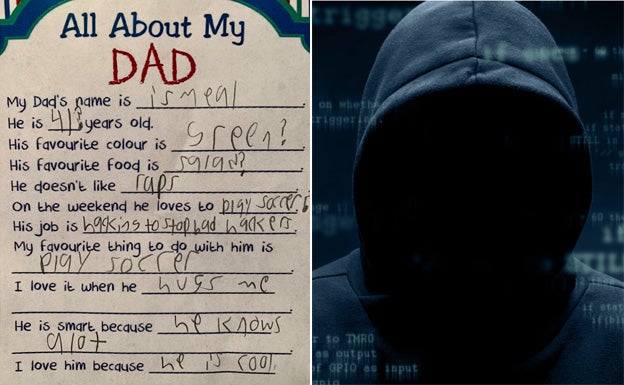 All About My
DAD
My Dad's name is ismeal.
He is 41? years old.
His favourite colour is green?
His favourite food is salad?
He doesn't like raps.
On the weekend he loves to play soccer.
His job is hacking to stop bad hackers.
My favourite thing to do with him is
play soccer.
I love it when he hugs me
He is smart because he knows
alot.
I love him because he is cool.
trigge
on whethe
triggering.
STILL
if stat
to TMR0
as output
of GPIO as input